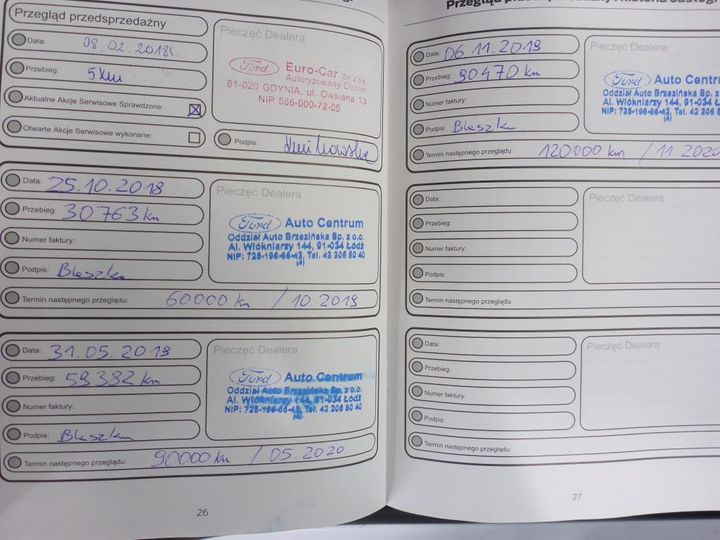 Przegląd przedsprzedażny
Data: 08.02.2018r.
Przebieg: 5 km
Aktualne Akcje Serwisowe Sprawdzone:
Otwarte Akcje Serwisowe wykonane:
Pieczęć Dealera
Ford Euro-Car Sp. z o.o.
Autoryzowany Dealer
81-020 GDYNIA, ul. Owsiana 13
NIP 586-000-72-05
Podpis:
Data: 25.10.2018
Przebieg: 30763 km
Numer faktury:
Podpis: Blaszka
Termin następnego przeglądu: 60000 km / 10.2019
Pieczęć Dealera
Ford Auto Centrum
Oddział Auto Brzezińska Sp. z o.o.
Al. Włókniarzy 144, 91-034 Łódź
NIP: 728-196-66-42, Tel. 42 206 80 40
(4)
Data: 31.05.2019
Przebieg: 59382 km
Numer faktury:
Podpis: Blaszka
Termin następnego przeglądu: 90000 km / 05.2020
Pieczęć Dealera
Ford Auto Centrum
Oddział Auto Brzezińska Sp. z o.o.
Al. Włókniarzy 144, 91-034 Łódź
NIP: 728-196-66-42, Tel. 42 206 80 40
(4)
26
Data: 06.11.2019
Przebieg: 90470 km
Numer faktury:
Podpis: Blaszka
Termin następnego przeglądu: 120000 km / 11.2020
Ford Auto Cent
Oddział Auto Brzezińska Sp.
Al. Włókniarzy 144, 91-034
NIP: 728-196-66-42, Tel. 42 206
(4)
Data:
Przebieg:
Numer faktury:
Podpis:
Termin następnego przeglądu:
Pieczęć Dealera
Data:
Przebieg:
Numer faktury:
Podpis:
Termin następnego przeglądu:
Pieczęć Dealera
27